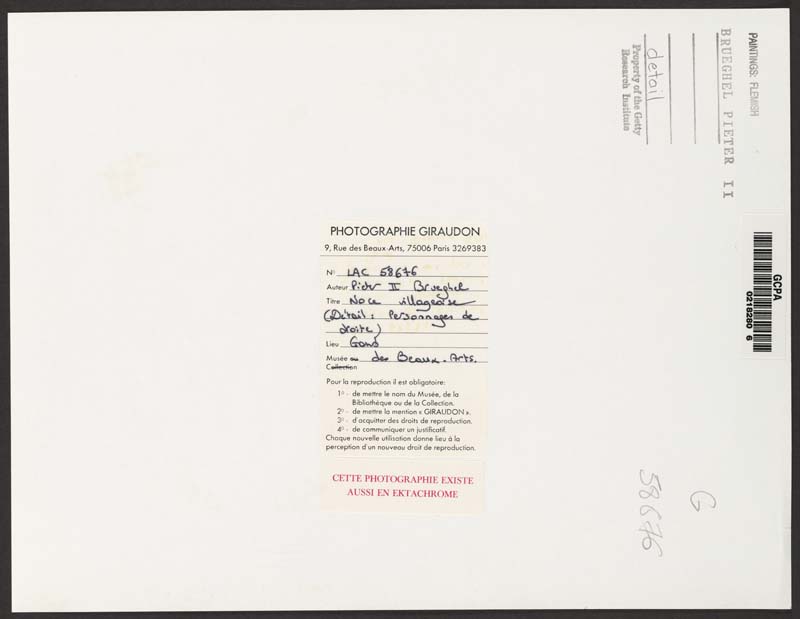 PAINTINGS: FLEMISH
BRUEGHEL PIETER II
detail
Property of the Getty
Research Institute
GCPA
0218280 6
PHOTOGRAPHIE GIRAUDON
9, Rue des Beaux-Arts, 75006 Paris 3269383
No LAC 58676
Auteur Pieter II Brueghel
Titre Noce villageoise
(Détail : Personnages de
droite)
Lieu Gand
Musée ou des Beaux-Arts.
Collection
Pour la reproduction il est obligatoire:
1o - de mettre le nom du Musée, de la
Bibliothèque ou de la Collection.
2o - de mettre la mention « GIRAUDON ».
3o - d'acquitter des droits de reproduction.
4o - de communiquer un justificatif.
Chaque nouvelle utilisation donne lieu à la
perception d'un nouveau droit de reproduction.
CETTE PHOTOGRAPHIE EXISTE
AUSSI EN EKTACHROME
G
58676